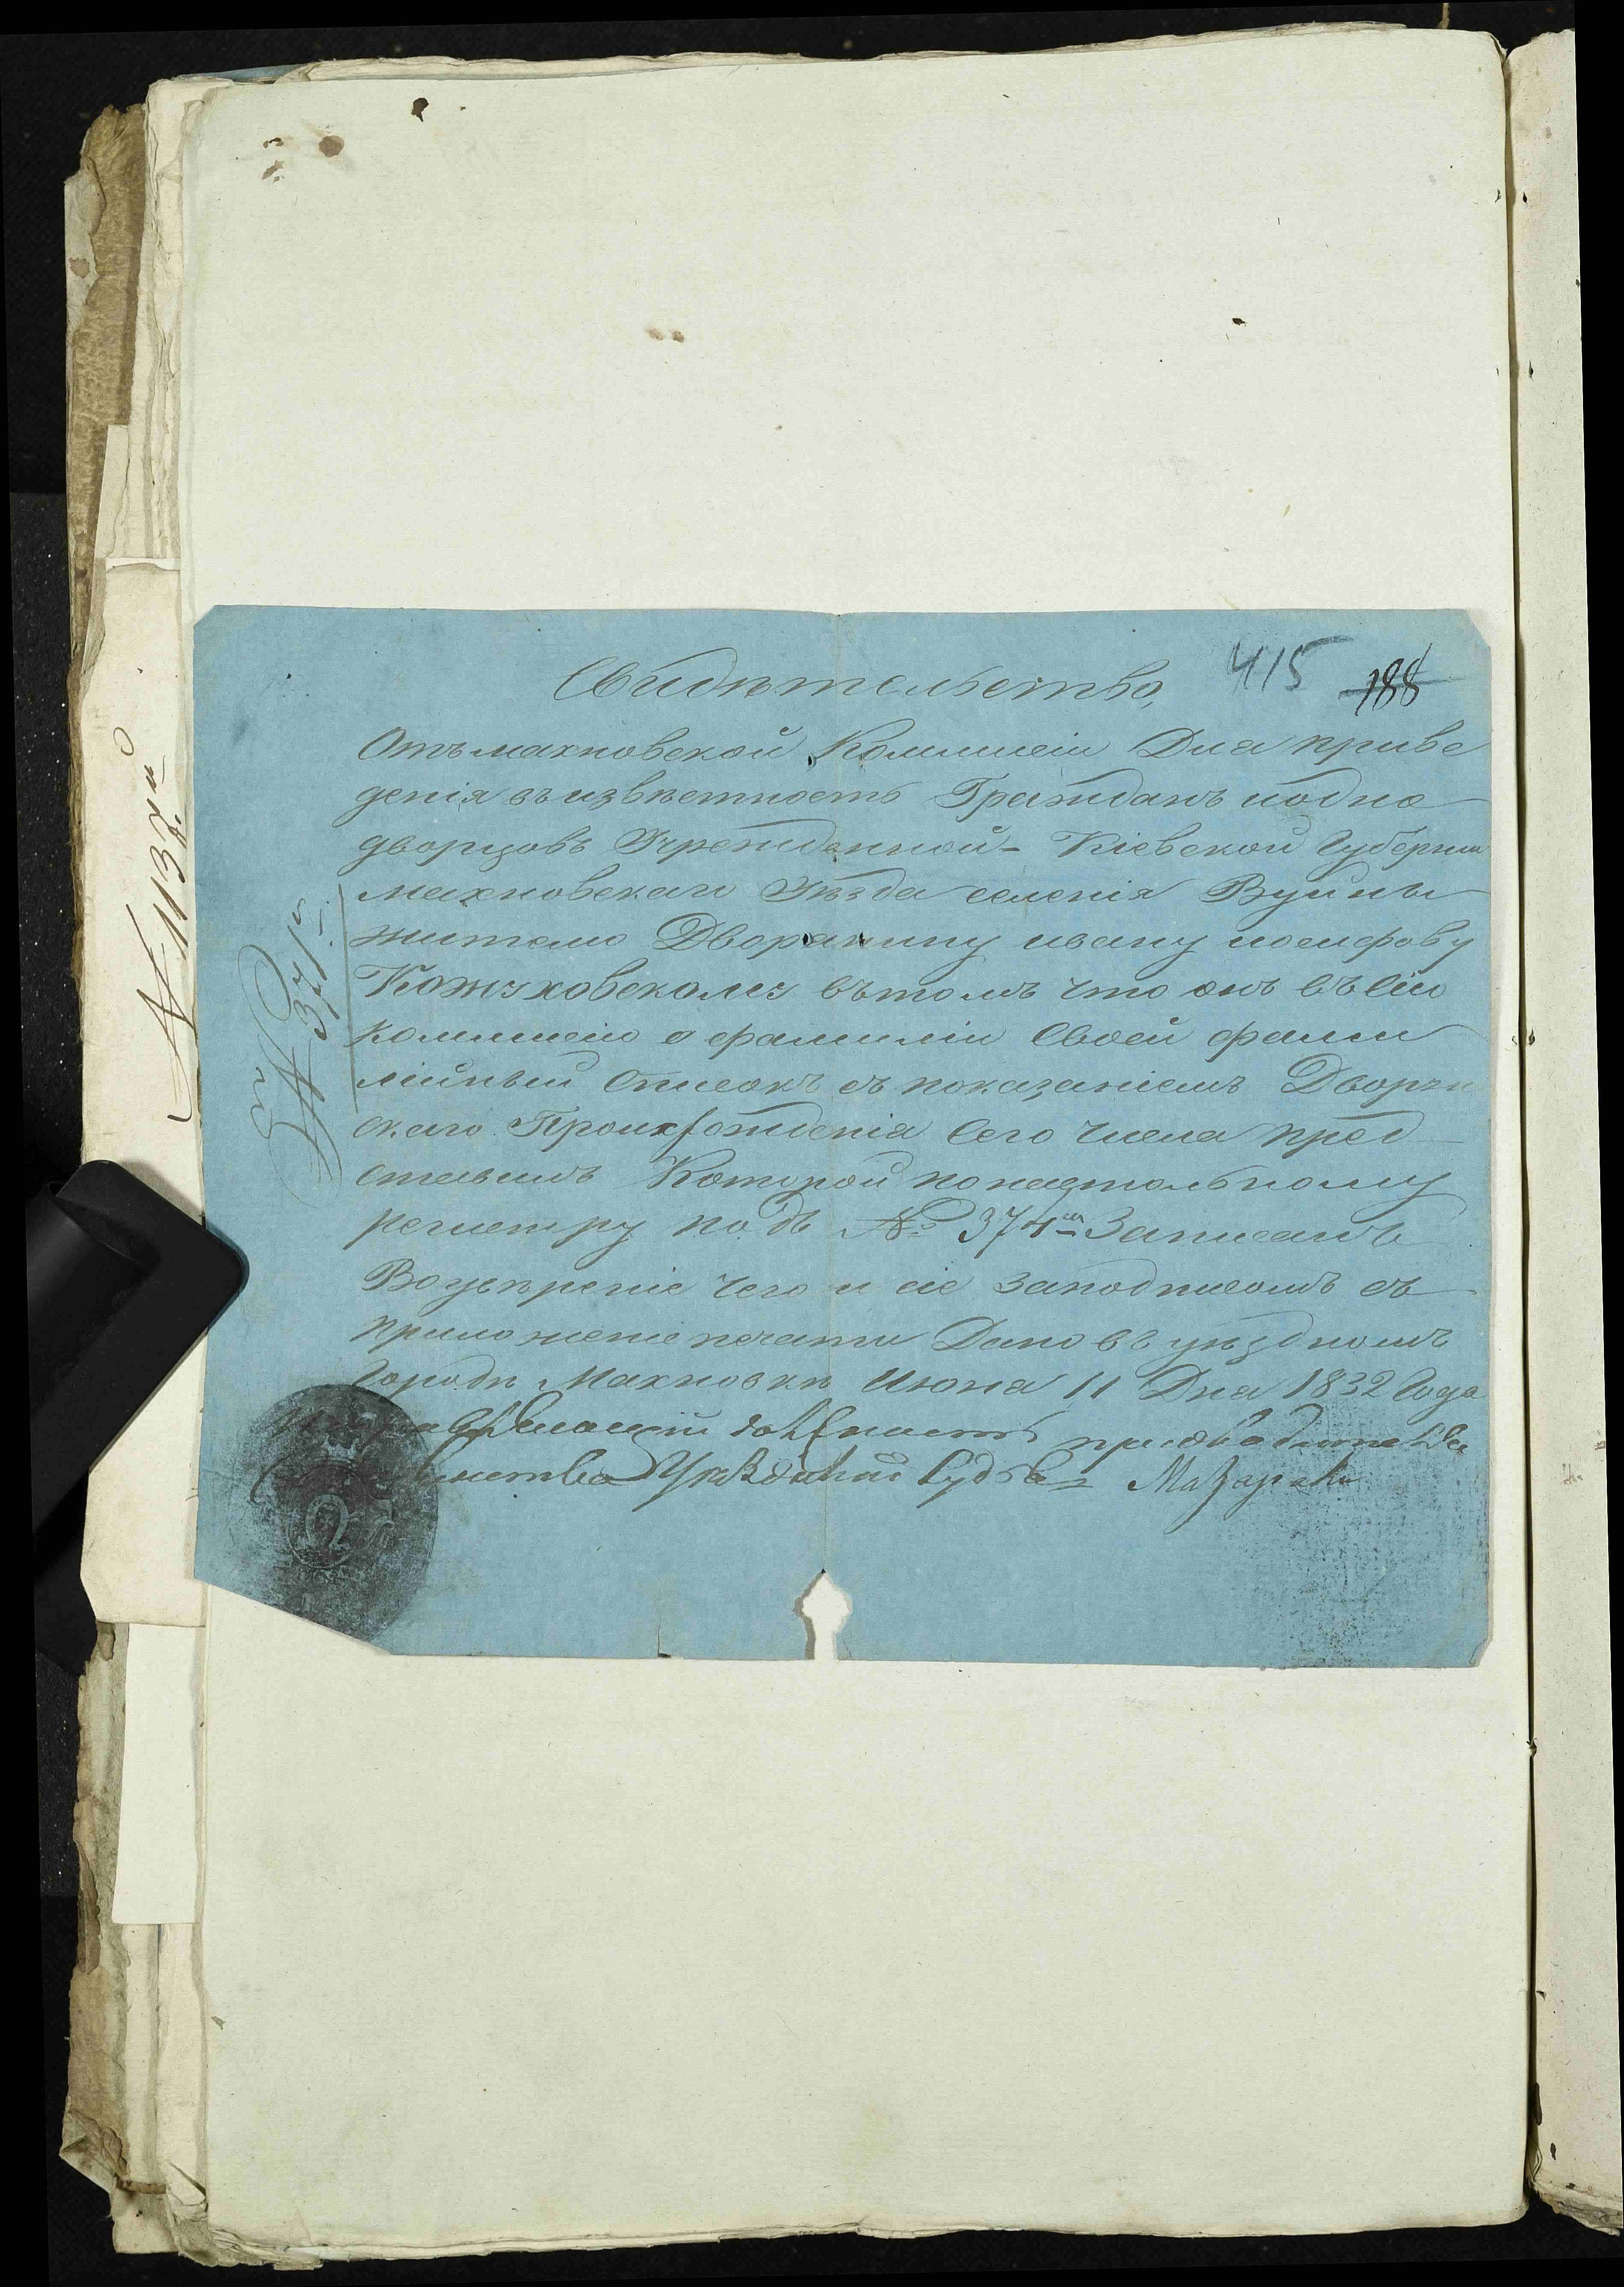 Свидѣтельство,
415
188
Отъ махновской Коммисіи Для приве
денія въ извѣстность Гражданъ иодно
дворцовъ Учрежденной - Кіевской Губерніи
Махновскаго Уѣзда селенія Вуйны
жителю Дворянину ивану иосифову
Кожуховскому въ томъ что онъ въ сію
коммисію о фамиліи Своей фами
лійный Списокъ съ показаніемъ Дворян
скаго Происхожденія Сего числа пред
ставилъ Которой по настольному
регистру подъ № 374м Записанъ
Во увѣреніе чего и сіе за подписомъ съ
приложеніе печати Дано въ уѣздномъ
Городѣ Махновкѣ Июня 11 Дня 1832 Года
должность предводителя
Уѣздный Судья
№ 374
№ 113